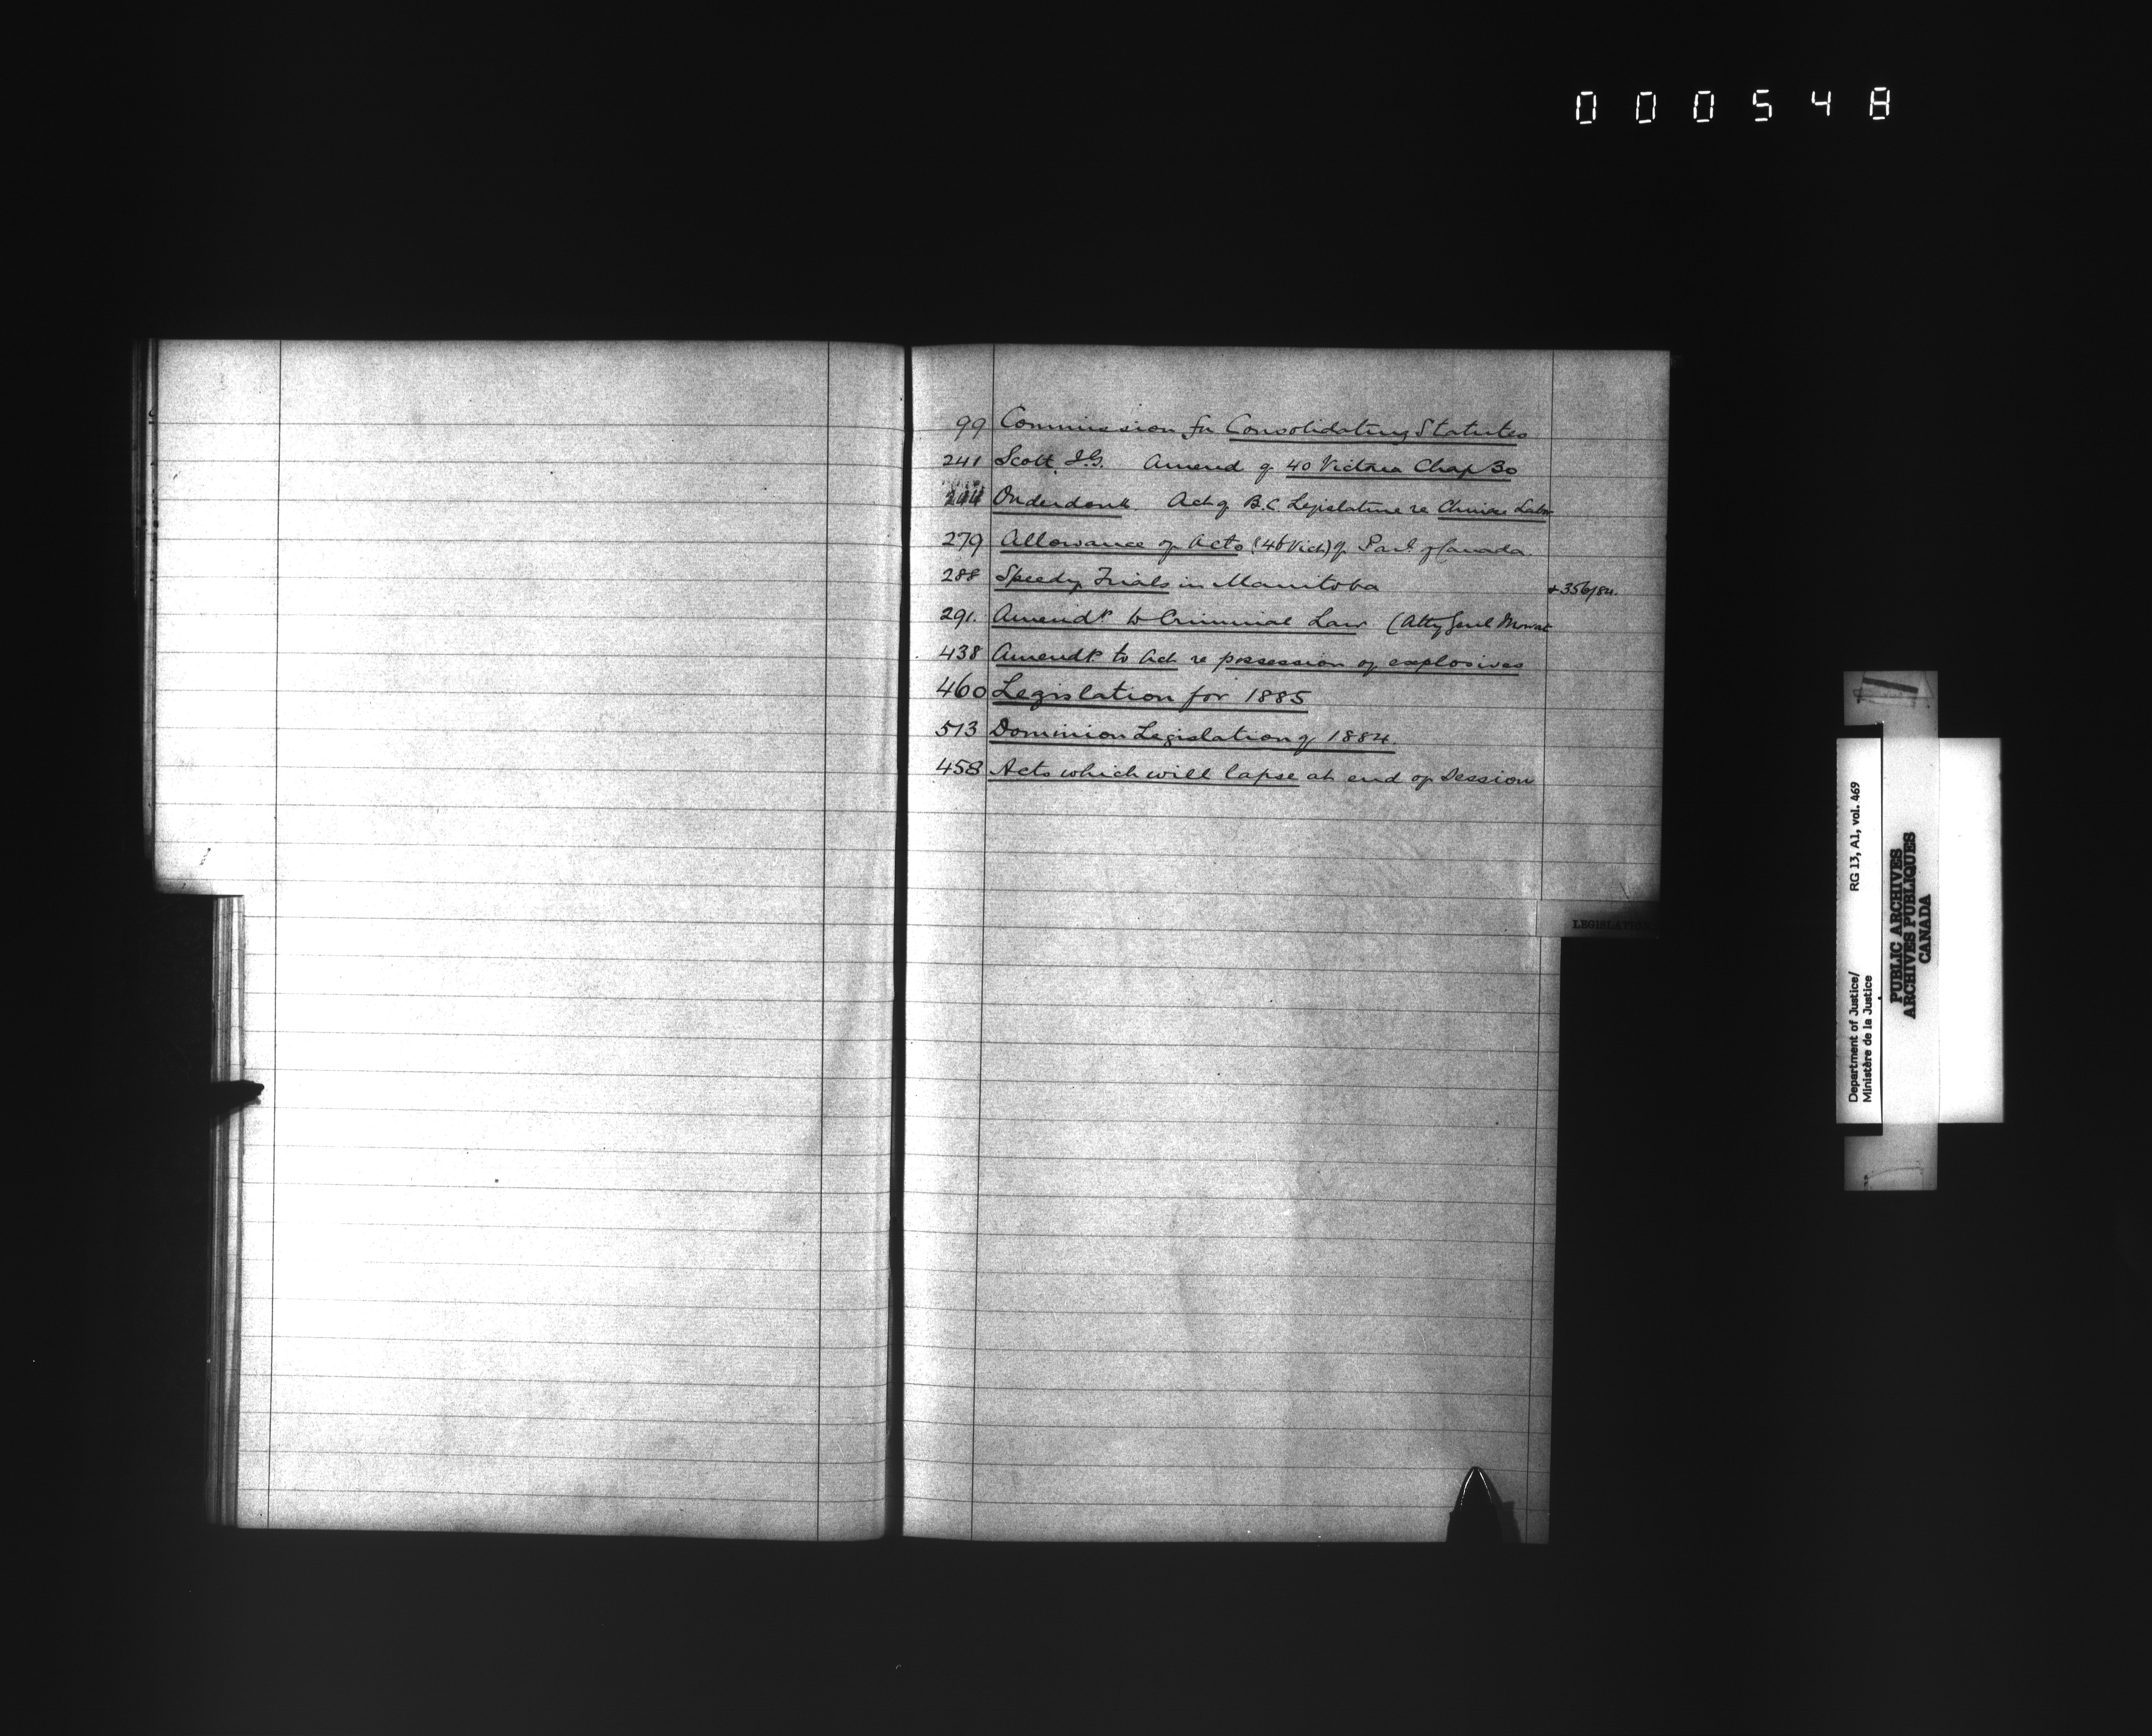 000548
99 Commission for Consolidating Statutes
241 Scott, J.G. Amend of 40 Victoria Chap 30
244 Onderdonk Act of B.C. Legislature re Chinese Labor
279 Allowance of Acts (46 Vict) of Parl of Canada
288 Speedy Trials in Manitoba + 356/84.
291. Amendt to Criminal Law (Atty Genl Mowat
438 Amendt to Act re possession of explosives
460 Legislation for 1885
513 Dominion Legislation of 1884
458 Acts which will lapse at end of Session
LEGISLATION
Department of Justice/ RG 13, A1, vol. 469
Ministère de la Justice
PUBLIC ARCHIVES
ARCHIVES PUBLIQUES
CANADA